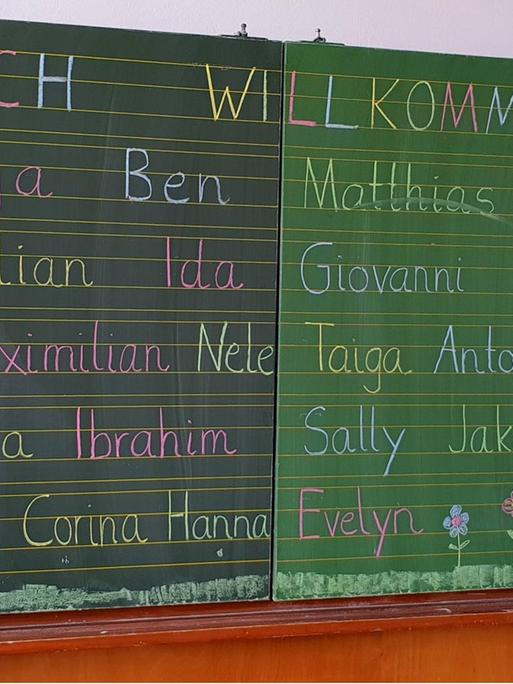 CH WILLKOMM
a Ben Matthias
lian Ida Giovanni
ximilian Nele Taiga Anto
a Ibrahim Sally Jak
Corina Hanna Evelyn